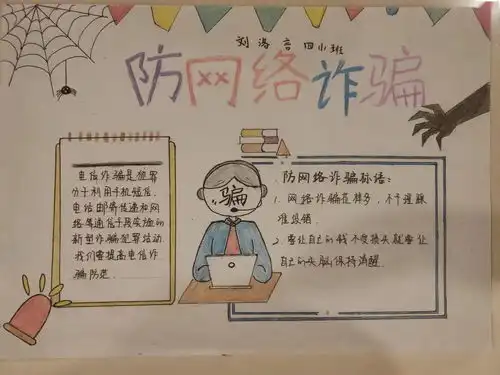 刘洛言 四小班
防网络诈骗
电信诈骗是犯罪
分子利用手机短信、
电话、邮寄传递和网
络等通信手段实施的
新型诈骗犯罪活动
我们要提高电信诈
骗防范.
骗
防网络诈骗标语:
1. 网络诈骗花样多,不干涯睬
准没错.
2. 要让自己的钱不受损失就要让
自己的头脑保持清醒.